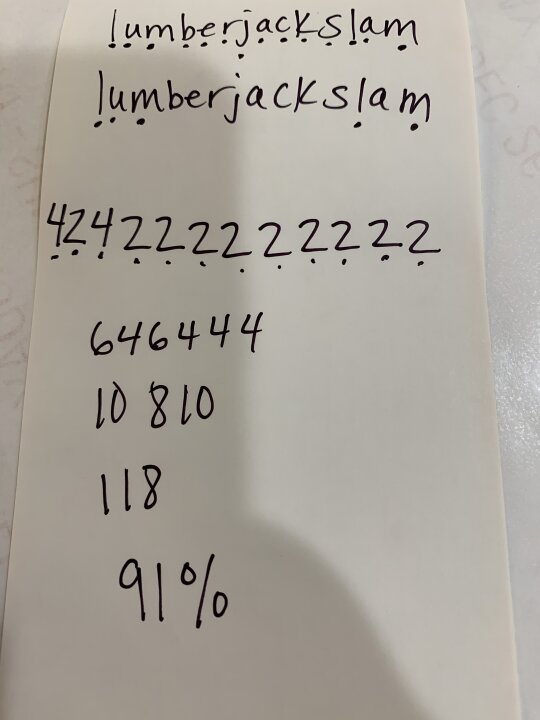 lumberjackslam
lumberjackslam
424222222222
646444
10 8 10
118
91%